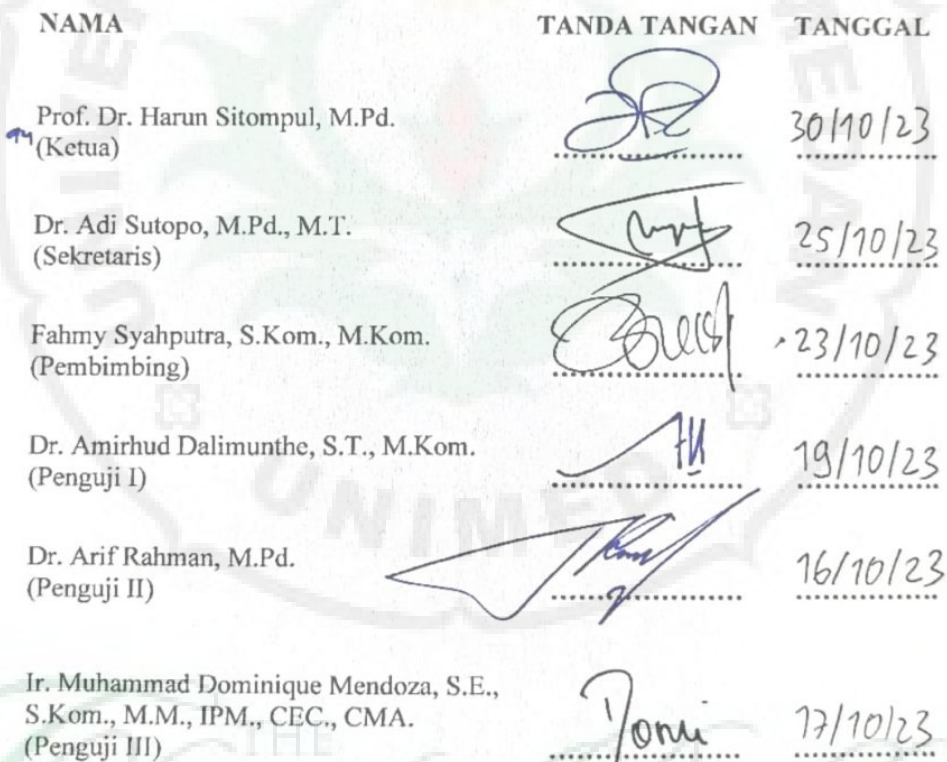 NAMA TANDA TANGAN TANGGAL
Prof. Dr. Harun Sitompul, M.Pd.
(Ketua) .................... 30/10/23
Dr. Adi Sutopo, M.Pd., M.T.
(Sekretaris) .................... 25/10/23
Fahmy Syahputra, S.Kom., M.Kom.
(Pembimbing) .................... 23/10/23
Dr. Amirhud Dalimunthe, S.T., M.Kom.
(Penguji I) .................... 19/10/23
Dr. Arif Rahman, M.Pd.
(Penguji II) .................... 16/10/23
Ir. Muhammad Dominique Mendoza, S.E.,
S.Kom., M.M., IPM., CEC., CMA.
(Penguji III) Domi 17/10/23
UNIMED
THE